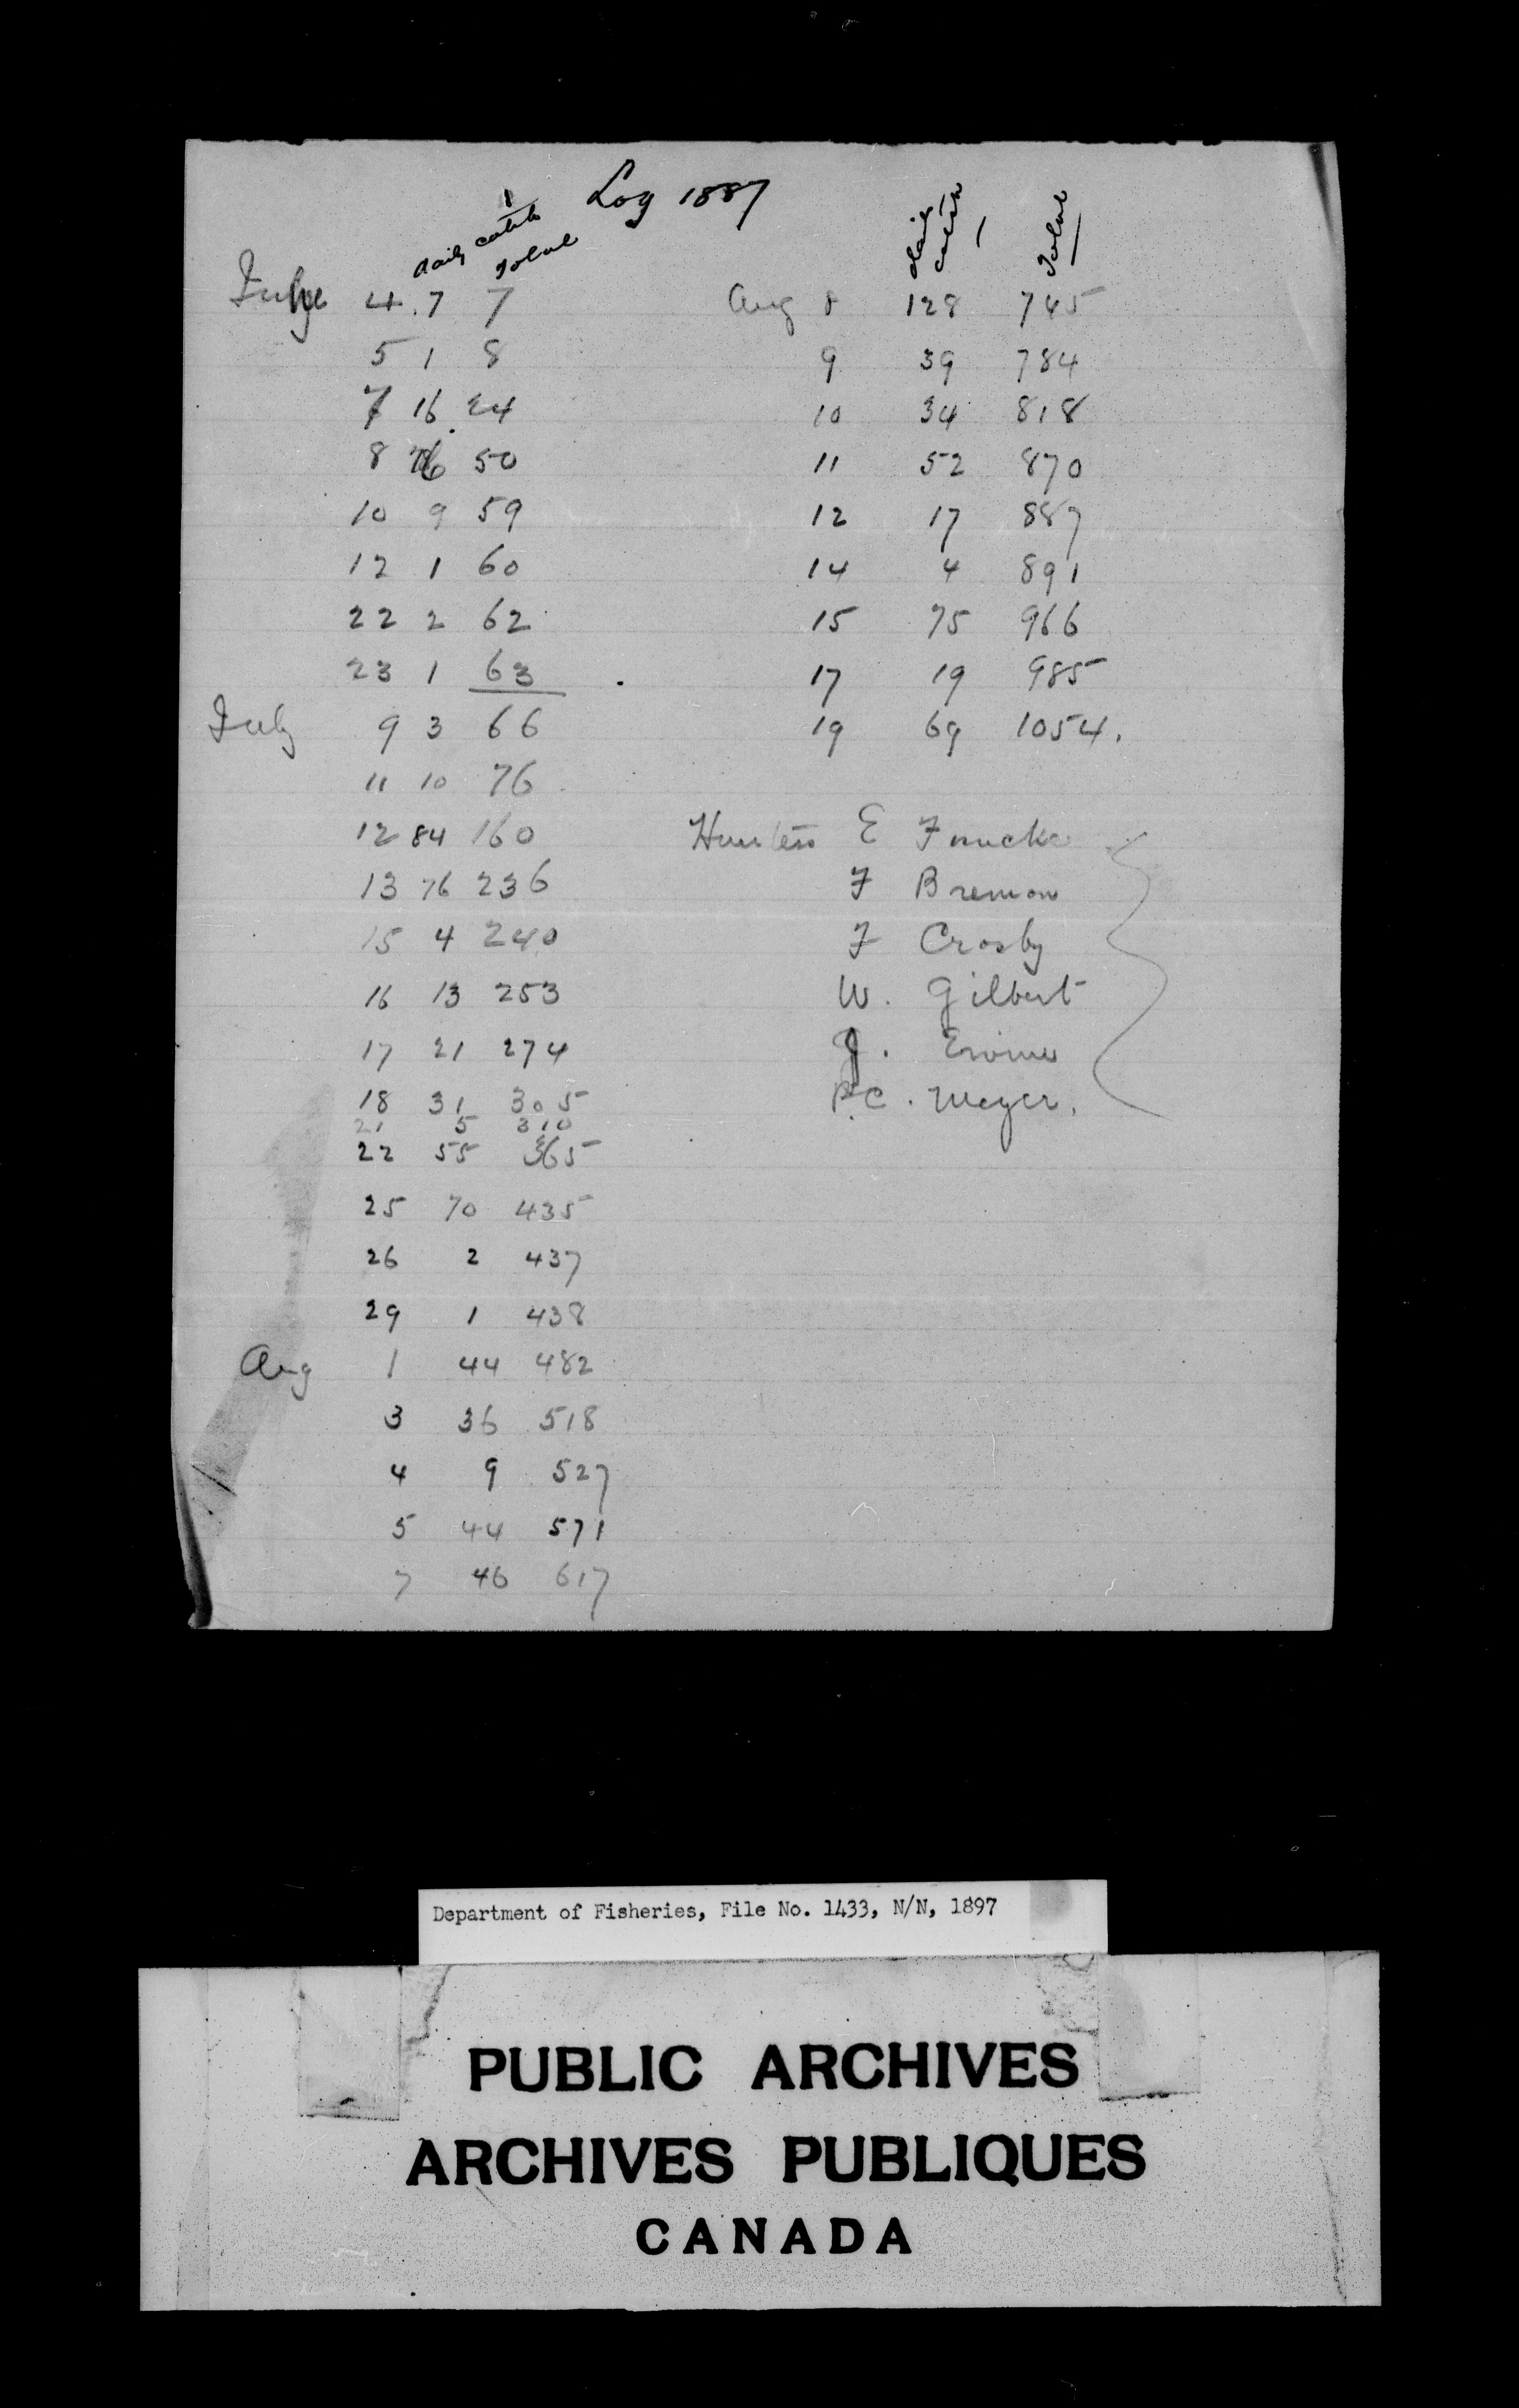 Log 1887
daily catch total
June 4 . 7 7
5 1 8
7 16 24
8 26 50
10 9 59
12 1 60
22 2 62
23 1 63
July 9 3 66
11 10 76
12 84 160
13 76 236
15 4 240
16 13 253
17 21 274
18 31 305
21 5 310
22 55 365
25 70 435
26 2 437
29 1 438
Aug 1 44 482
3 36 518
4 9 527
5 44 571
7 46 617
daily catch total
Aug 8 128 745
9 39 784
10 34 818
11 52 870
12 17 887
14 4 891
15 75 966
17 19 985
19 69 1054.
Hunters E
F
F Crosby
W. Gilbert
J.
P.C. Meyer.
Department of Fisheries, File No. 1433, N/N, 1897
PUBLIC ARCHIVES
ARCHIVES PUBLIQUES
CANADA